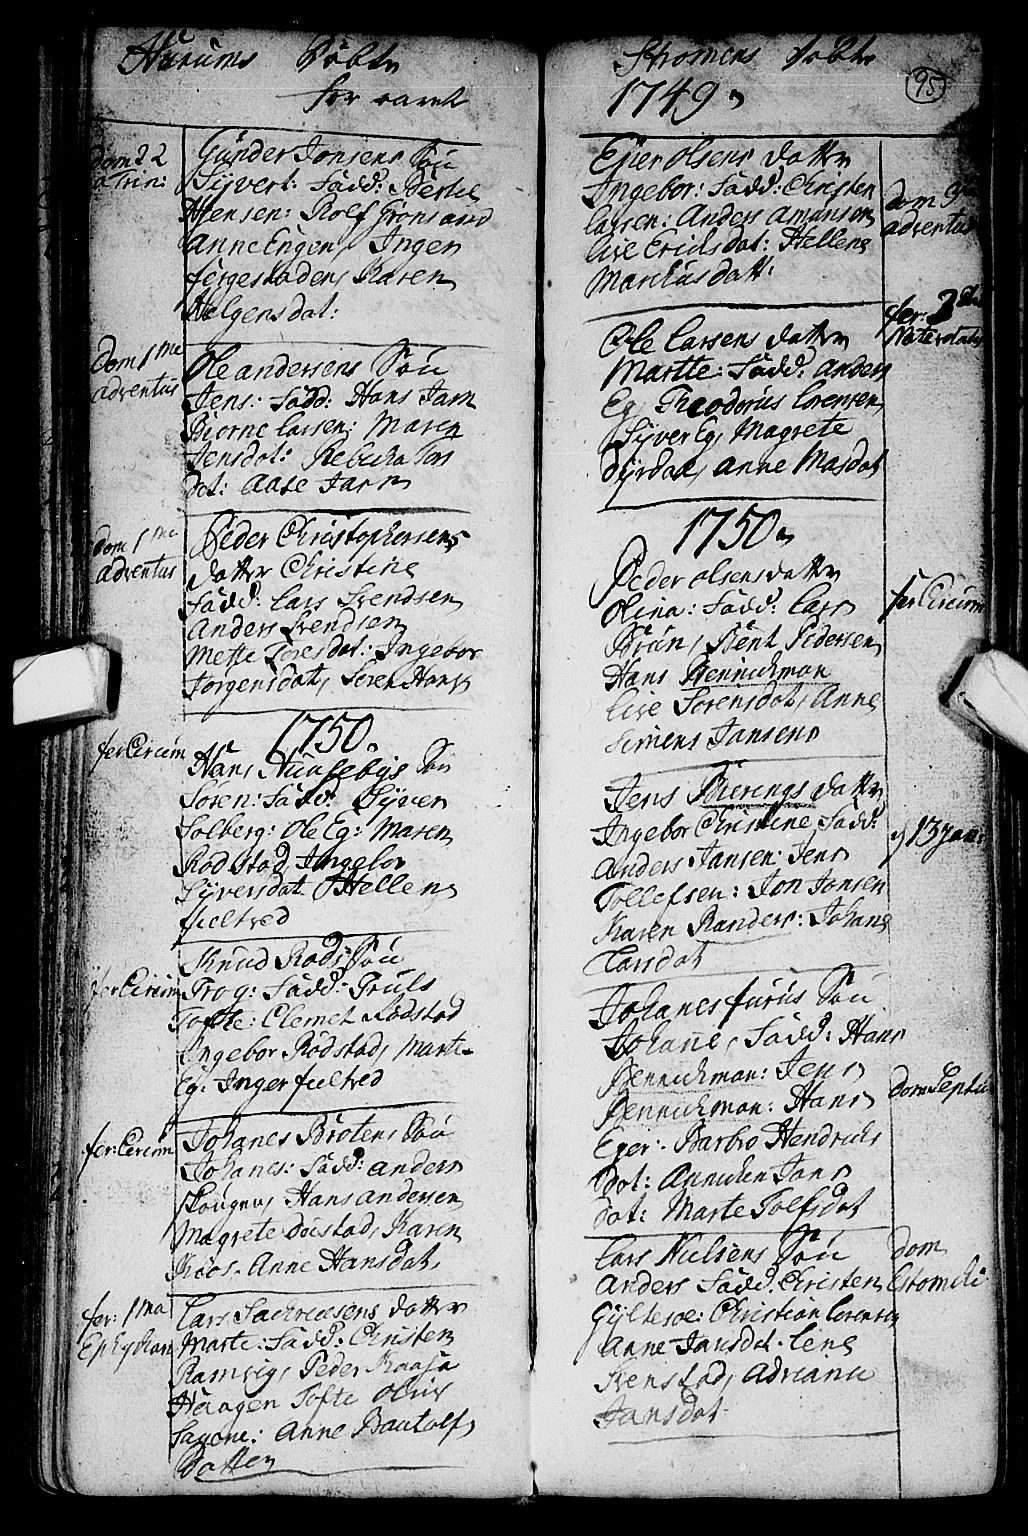 Hurums Döbte
for aaret
dom 22
a Trin:
Gunder Jonsens Sön
Syvert: Fadd: Bertel
Hensen: Rolf Grønsand
Anne Engen, Ingen
fergestaden, Karen
Helgensdat:
dom 1me
adventus
Ole andersens Sön
Jens: Fadd: Hans Jarn
Biørne Larsen: Maren
Jensdot: Rebecka Tors
dot: Aase Jarn
dom 1me
adventus
Peder Christophersens
datter Christine
Fadd: Lars Svendsen
Anders Svendsen
Mette Toresdot: Ingebor
Jorgensdat, Søren Hans
1750.
fer Circum
Hans Huusebys Sön
Søren: Fadd: Syver
Solberg: Ole Eg: Maren
Rødstad, Ingebor
Syversdat Hellen
fieltved
fer Circum
Knud Rods Sön
Trog: Fadd: Truls
Tofte: Clemet Rødstad
Ingebor Rødstad, Marte
Eg: Inger fieltved
fer: Circum
Johanes Brotens Sön
Johanes: Fadd: anders
Skougen, Hans andersen
Magrete dustad, Karen
Kroos. Anne Hansdat,
fer: 1ma
Lars Sachriesens datter
Marte: Fadd: Christen
Ramvig, Peder Kaasa
Haagen Tofte
Sagene: Anne Bautolfs
Datter
Stromens Döbte
1749
95
Ejer Olsens datter
Ingebor: Fadd: Christen
Larsen: Anders Amunsen
Live Ericksdat: Hellene
Markusdatt:
dom
adventus
Ole Larsens datter
Martte: Fadd: anders
Eg, Theodorus Lorensen
Syver Eg, Magrete
Dyrdal, Anne Masdat
fer:
1750
Peder Olsens datter
Olina: Fadd: Lars
Brøn, Bent Pedersen
Hans Bennichman
Live Sorensdot, Anne
Simens Jansens
fer Circum
Jens Bierings datter
Ingebor Christine, Fadd:
Anders Jansen: Jens
Tollefsen: Jon Jonsen
Karen Randers: Johane
Larsdat
d 13 Jan:
Johanes furus Sön
Johane, Fadd: Hans
Bennichman: Jens
Bennichman: Hans
Eger. Barbro Hendrichs
dot: Annichen Jans
dat: Marte Tolfsdat
dom Septu
Lars Nielsens Sön
Anders Fadd: Christen
Gyltesøe: Christian Lorensen
Anne Jansdat. Lene
Svenstad, Adriane
Jansdat.
dom
Estomihi